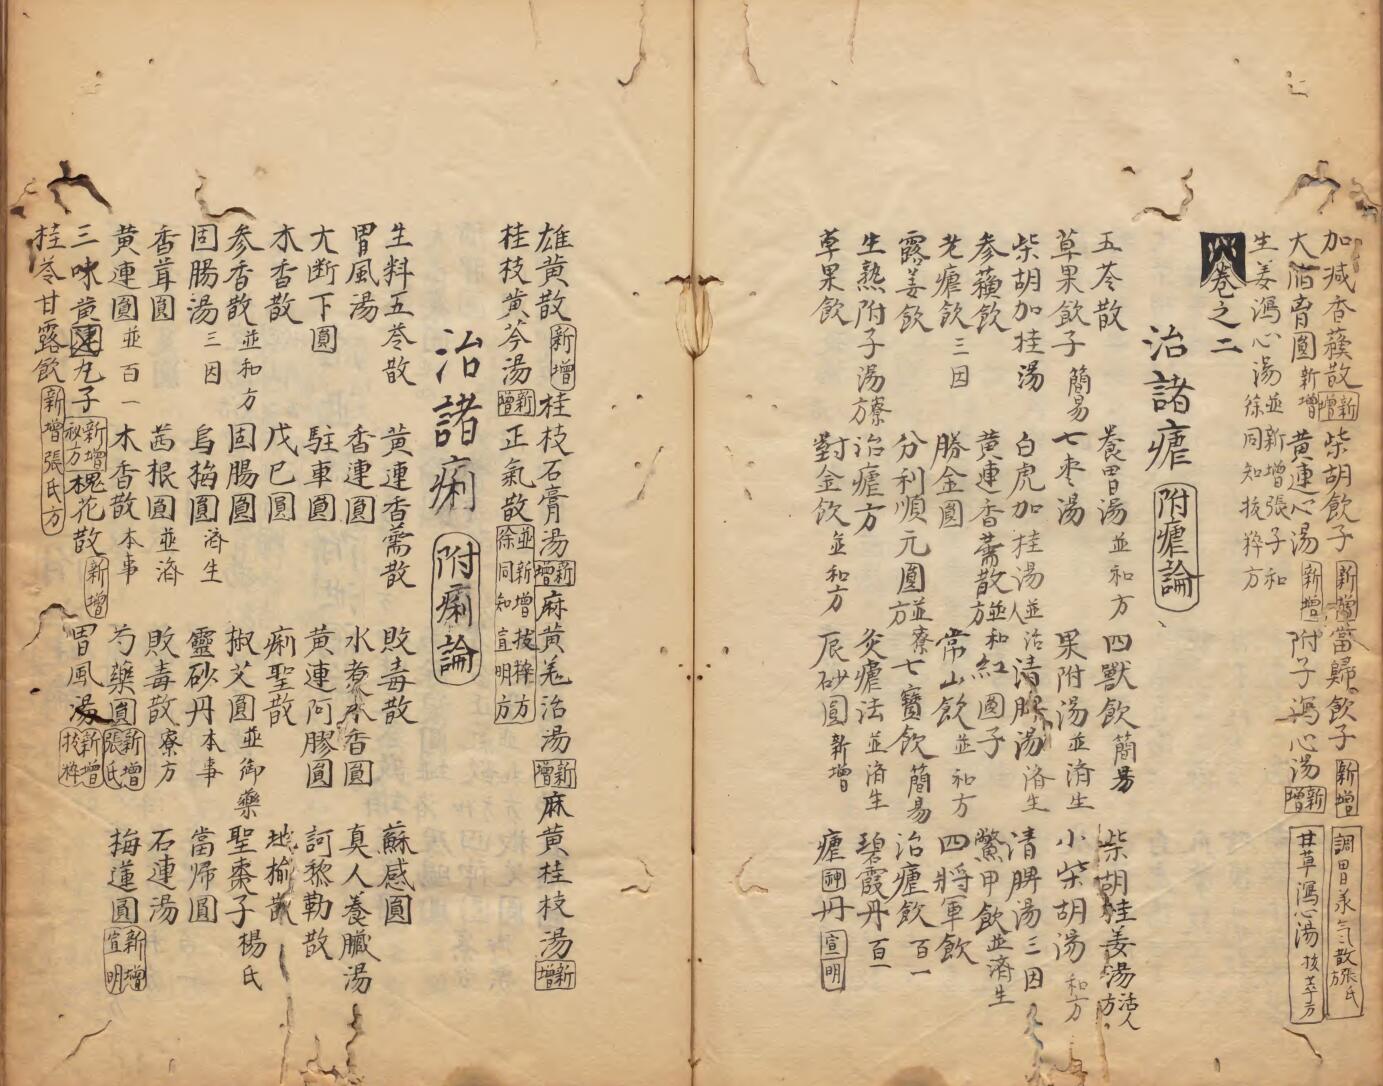 加减香薷散新增 柴胡飲子新增 當歸飲子新增 調胃承气散張氏方
大陷胷圓新增 黄連心湯新增 附子瀉心湯新增 甘草瀉心湯拔萃方
生姜瀉心湯並新增張子和徐同知拔粹方
卷之二
治諸瘧 附瘧論
五苓散 養胃湯並和方 四獸飲簡易 柴胡桂姜湯活人方
草果飲子簡易 七枣湯 果附湯並済生 小柴胡湯和方
柴胡加桂湯 白虎加桂湯並活人 清脾湯済生 清脾湯三因
参蘓飲 黄連香薷散並和方 紅圓子 鱉甲飲並済生
老瘧飲三因 勝金圓 常山飲並和方 四将軍飲
露姜飲 分利順元圓並寮方 七寳飲簡易 治瘧飲百一
生熟附子湯寮方 治瘧方 灸瘧法並済生 碧霞丹百一
草果飲 對金飲並和方 辰砂圓新增 瘧神丹宣明
雄黄散新增 桂枝石膏湯新增 麻黄羌活湯新增 麻黄桂枝湯新增
桂枝黄芩湯新增 正氣散並新增拔粹方徐同知宣明方
治諸痢 附痢論
生料五苓散 黄連香薷散 敗毒散 蘇感圓
胃風湯 香連圓 水煮木香圓 真人養臓湯
大断下圓 駐車圓 黄連阿膠圓 訶黎勒散
木香散 戊己圓 痢聖散 地榆散
参香散並和方 固腸圓 椒艾圓並御藥 聖棗子楊氏
固腸湯三因 烏梅圓済生 靈砂丹本事 當帰圓
香茸圓 茜根圓並済 敗毒散寮方 石連湯
黄連圓並百一 木香散本事 芍藥圓新增張氏 梅蓮圓新增宣明
三味黄連丸子新增秘方 槐花散新增 胃風湯新增拔粹
桂苓甘露飲新增張氏方